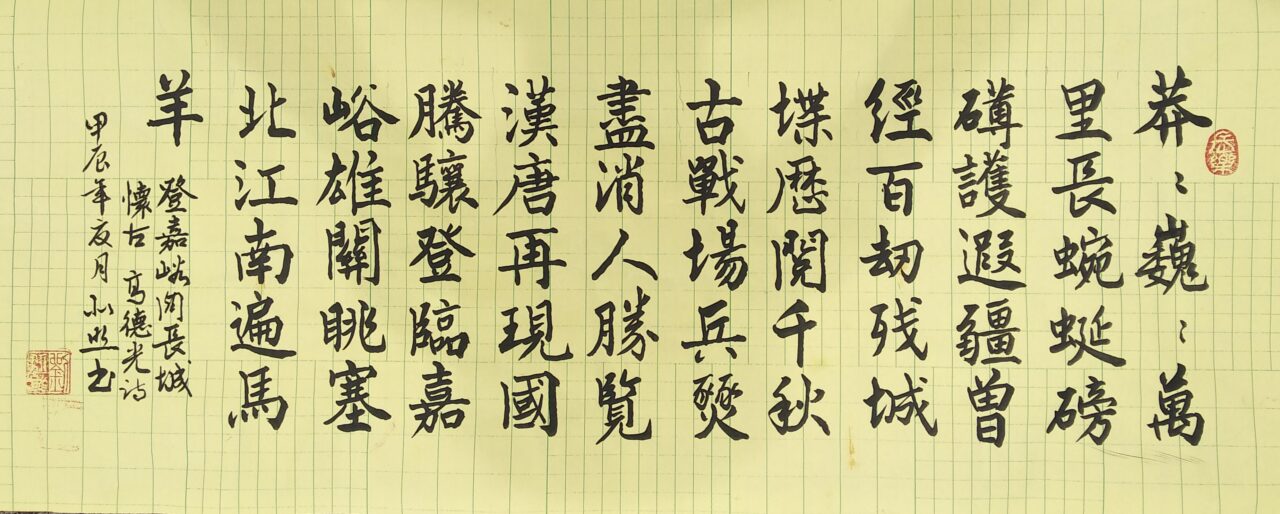 莽〻巍〻萬
里長蜿蜒磅
礴護遐疆曾
經百劫残城
堞歷閱千秋
古戰場兵燹
盡消人勝覽
漢唐再現國
騰驤登臨嘉
峪雄關眺塞
北江南遍馬
羊
登嘉峪関長城
懷古 高德光詩
甲辰年夏月 书